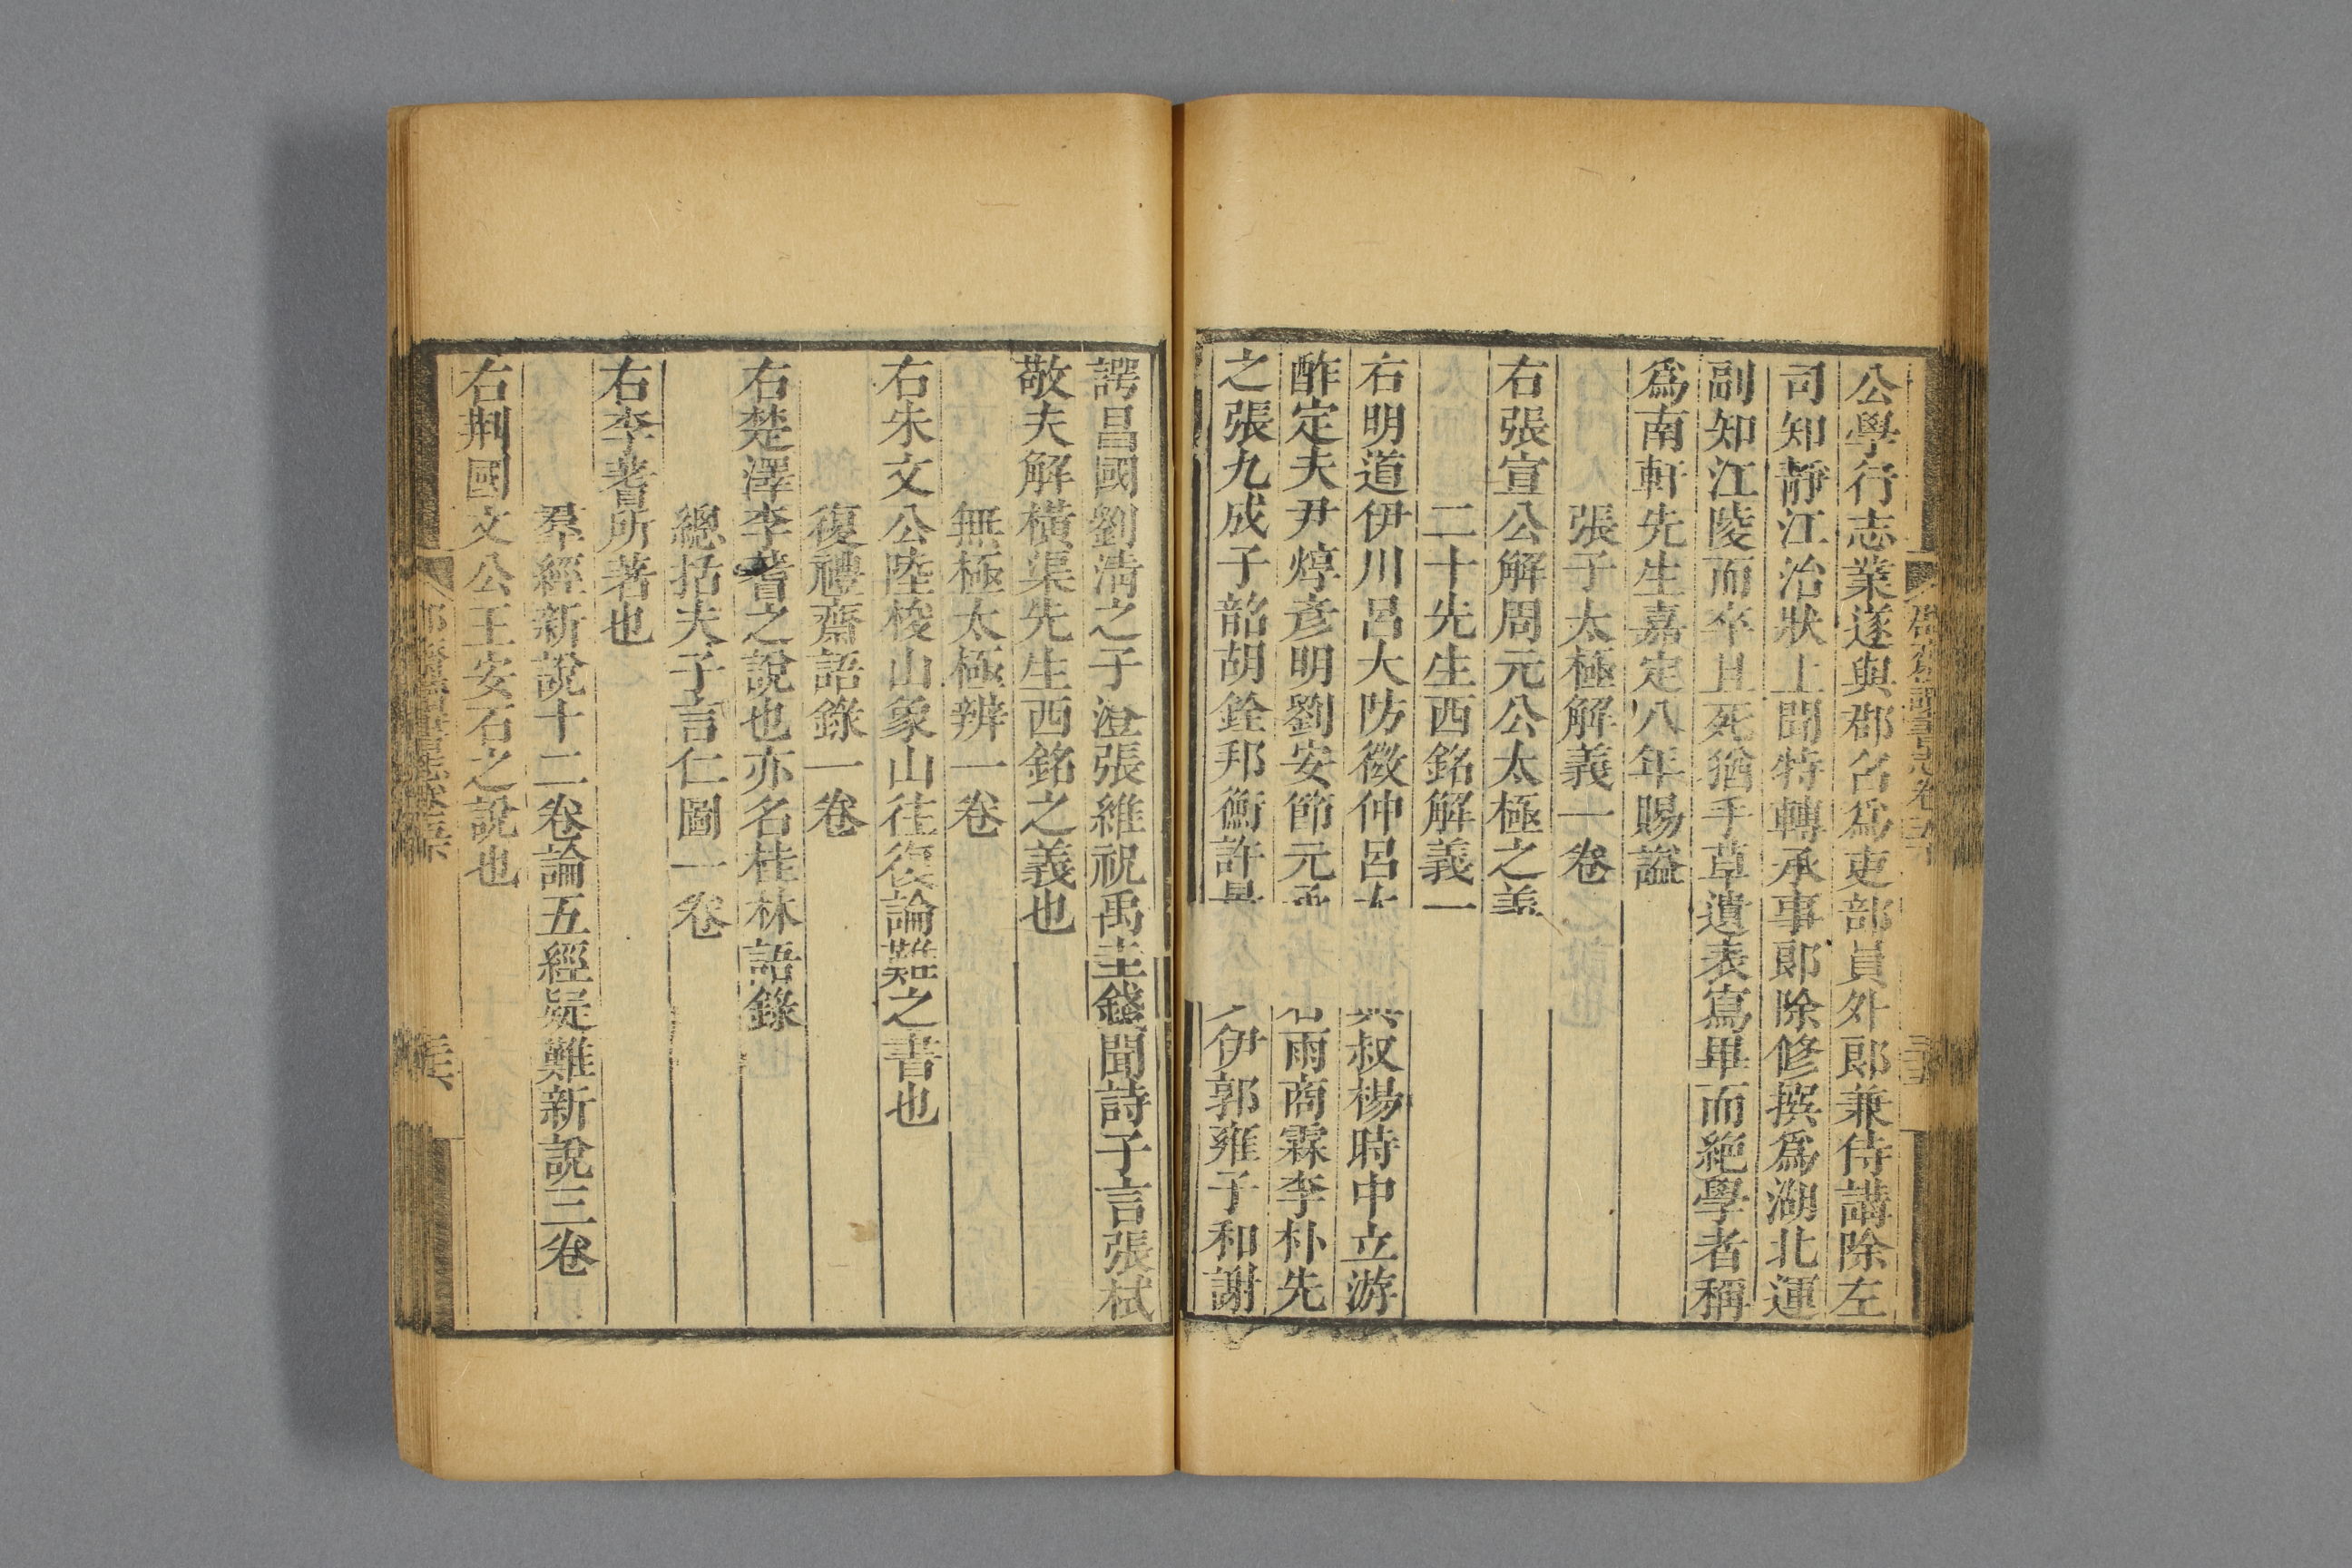 公學行志業遂與郡名爲吏部員外郎兼侍講除左
司知靜江治狀上聞特轉承事郎除修撰爲湖北運
副知江陵而卒且死猶手草遺表寫畢而絶學者稱
爲南軒先生嘉定八年賜謚
張子太極解義一卷
右張宣公解周元公太極之義
二十先生西銘解義一
右明道伊川呂大防微仲呂大 與叔楊時中立游
酢定夫尹焞彥明劉安節元承 若雨商霖李朴先
之張九成子韶胡銓邦衡許景 伊郭雍子和謝
諤昌國劉淸之子澄張維祝禹圭錢聞詩子言張栻
敬夫解橫渠先生西銘之義也
無極太極辨一卷
右朱文公陸梭山象山往復論難之書也
復禮齋語錄一卷
右楚澤李耆之說也亦名桂林語錄
總括夫子言仁圖一卷
右李耆所著也
羣經新說十二卷論五經疑難新說三卷
右荆國文公王安石之說也